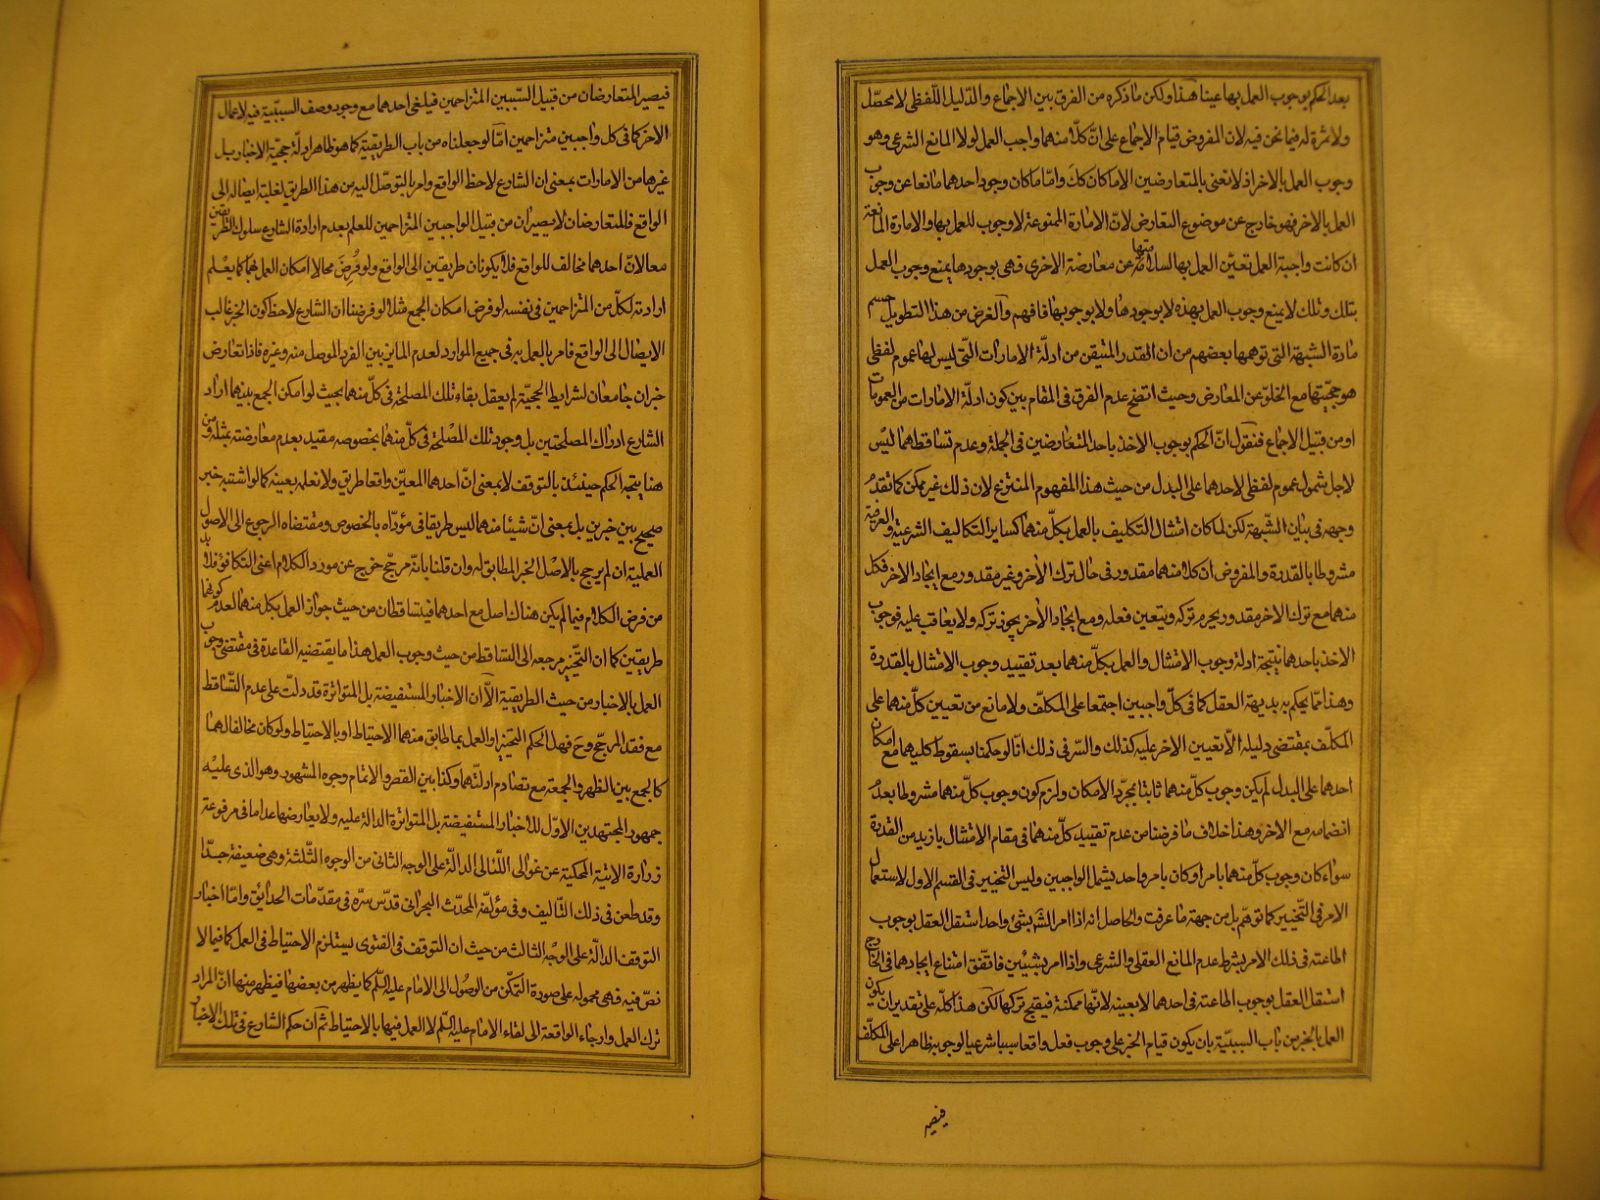 بعد الحكم بوجوب العمل بها عينا هذا ولكن ما ذكره من الفرق بين الاجماع والدّليل اللّفظى لا محصّل
ولا ثمرة له فيما نحن فيه لان المفروض قيام الاجماع على انّ كلّا منهما واجب العمل لولا المانع الشرعى وهو
وجوب العمل بالاخر اذ لا نعنى بالمتعارضين الا ما كان كك وامّا ما كان وجود احدهما مانعا عن وجوب
العمل بالاخر فهو خارج عن موضوع التعارض لانّ الامارة الممنوعة لا وجوب للعمل بها والامارة المانعة
ان كانت واجبة العمل تعيّن العمل بها لسلامتها عن معارضة الاخرى فهى بوجودها يمنع وجوب العمل
بتلك وتلك لا يمنع وجوب العمل بهذه لا بوجودها ولا بوجوبها فافهم والغرض من هذا التطويل حسم
مادة الشبهة التى توهمها بعضهم من ان القدر المتيقن من ادلّة الامارات التّى ليس لها عموم لفظى
هو حجّيتها مع الخلوّ عن المعارض وحيث اتضح عدم الفرق فى المقام بين كون ادلة الامارات من العمومات
او من قبيل الاجماع فنقول انّ الحكم بوجوب الاخذ باحد المتعارضين فى الجملة وعدم تساقطهما ليس
لاجل شمول عموم لفظى لاحدهما على البدل من حيث هذا المفهوم المنتزع لان ذلك غير ممكن كما تقدم
وجهه فى بيان الشّبهة لكن لما كان امتثال التكليف بالعمل بكلّ منهما كساير التكاليف الشرعية والعرفية
مشروطا بالقدرة والمفروض ان كلا منهما مقدور فى حال ترك الاخر وغير مقدور مع ايجاد الاخر فكل
منهما مع ترك الاخر مقدور يحرم تركه ويتعين فعله ومع ايجاد الاخر يجوز تركه ولا يعاقب عليه فوجوب
الاخذ باحدهما نتيجة ادلة وجوب الامتثال والعمل بكلّ منهما بعد تقييد وجوب الامتثال بالقدرة
وهذا ممّا يحكم به بديهة العقل كما فى كلّ واجبين اجتمعا على المكلّف ولا مانع من تعيين كلّ منهما على
المكلّف بمقتضى دليله الّا تعيين الاخر عليه كذلك والسّر فى ذلك انّا لو حكمنا بسقوط كليهما مع امكان
احدهما على البدل لم يكن وجوب كلّ منهما ثابتا بمجرّد الامكان ولزم كون وجوب كلّ منهما مشروطا بعدم
انضمامه مع الاخر وهذا خلاف ما فرضنا من عدم تقييد كلّ منهما فى مقام الامتثال بازيد من القدرة
سواء كان وجوب كلّ منهما بامر او كان بامر واحد يشمل الواجبين وليس التخيير فى القسم الاول لاستعمال
الامر فى التّخيير كما توهّم بل من جهة ما عرفت والحاصل انه اذا امر الشّر بشئ واحد استقل العقل بوجوب
اطاعته فى ذلك الامر بشرط عدم المانع العقلى والشرعى واذا امر بشيئين فاتّفق امتناع ايجادهما فى الخارج
استقل العقل بوجوب اطاعته فى احدهما لا بعينه لانّها ممكنة فيقبح تركها لكن هذا كلّه على تقدير ان يكون
العمل بالخبر من باب السببيّة بان يكون قيام الخبر على وجوب فعل واقعا سببا شرعيا لوجوبه ظاهرا على المكلّف
فيصير
فيصير المتعارضان من قبيل السّببين المتزاحمين فيلغى احدهما مع وجود وصف السببيّة فيه لاعمال
الاخر كما فى كل واجبين متزاحمين امّا لو جعلناه من باب الطريقيّة كما هو ظاهر ادلّة حجيّة الاخبار بل
غيرها من الامارات بمعنى ان الشارع لاحظ الواقع وامر بالتوصّل اليه من هذا الطريق لغلبة ايصاله الى
الواقع فالمتعارضان لا يصيران من قبيل الواجبين المتزاحمين للعلم بعدم ارادة الشارع سلوك الطريقين
معا لانّ احدهما مخالف للواقع قطعا فلا يكونان طريقين الى الواقع ولو فُرِضَ محالا امكان العمل بهما كما يعلم
ارادته لكلّ من المتزاحمين فى نفسه لو فرض امكان الجمع مثلا لو فرضنا ان الشارع لاحظ كون الخبر غالب
الايصال الى الواقع فامر بالعمل به فى جميع الموارد لعدم المايز بين الفرد الموصل منه وغيره فاذا تعارض
خبران جامعان لشرايط الحجيّة لم يعقل بقاء تلك المصلحة فى كلّ منهما بحيث لو امكن الجمع بينهما اراد
الشارع ادراك المصلحتين بل وجود تلك المصلحة فى كلّ منهما بخصوصه مقيد بعدم معارضته بمثله ومن
هنا يتّجه الحكم حينئذ بالتوقف لا بمعنى انّ احدهما المعيّن واقعا طريق ولا نعلمه بعينه كما لو اشتبه خبر
صحيح بين خبرين بل بمعنى انّ شيئا منهما ليس طريقا فى مؤدّاه بالخصوص ومقتضاه الرجوع الى الاصول
العملية ان لم يرجح بالاصل الخبر المطابق له وان قلنا بانّه مرجّح خرج عن مورد الكلام اعنى التكافؤ فلا بد
من فرض الكلام فيما لم يكن هناك اصل مع احدهما فيتساقطان من حيث جواز العمل بكل منهما لعدم كونهما
طريقين كما ان التّخيير مرجعه الى التساقط من حيث وجوب العمل هذا ما يقتضيه القاعدة فى مقتضى وجوب
العمل بالاخبار من حيث الطريقية الّا ان الاخبار المستفيضة بل المتواترة قد دلّت على عدم التّساقط
مع فقد المرجّح وح فهل الحكم التّخيير او العمل بما طابق منهما الاحتياط او بالاحتياط ولو كان مخالفا لهما
كالجمع بين الظهر والجمعة مع تصادم ادلّتهما وكذا بين القصر والاتمام وجوه المشهور وهو الذى عليه
جمهور المجتهدين الاوّل للاخبار المستفيضة بل المتواترة الدالة عليه ولا يعارضها عدا ما فى مرفوعة
زرارة الاتية المحكية عن غوالى اللّئالى الدالّة على الوجه الثانى من الوجوه الثّلثة وهى ضعيفة جدّا
وقد طعن فى ذلك التّاليف وفى مؤلّفه المحدّث البحرانى قدّس سرّه فى مقدّمات الحدائق وامّا اخبار
التوقف الدالّة على الوجه الثالث من حيث ان التوقف فى الفتوى يستلزم الاحتياط فى العمل كما فيما لا
نصّ فيه فهى محمولة على صورة التمكّن من الوصول الى الامام عليه السّلم كما يظهر من بعضها فيظهر منها انّ المراد
ترك العمل وارجاء الواقعة الى لقاء الامام عليه السّلم لا العمل فيها بالاحتياط ثم ان حكم الشارع فى تلك الاخبار